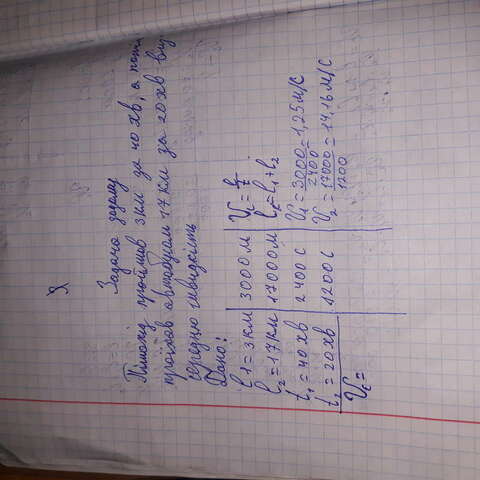 Задача додому
Пішохід пройшов 3км за 40 хв, а
проїхав автобусом 17 км за 20хв
середню швидкість
Дано:
l1=3км 3000м Vc=l/t.
l2=17км 17000м lc=l1+l2
t1=40хв 2400с V1=3000/2400=1,25м/с
t2=20хв 1200с V2=17000/1200=14,16м/с
Vc=